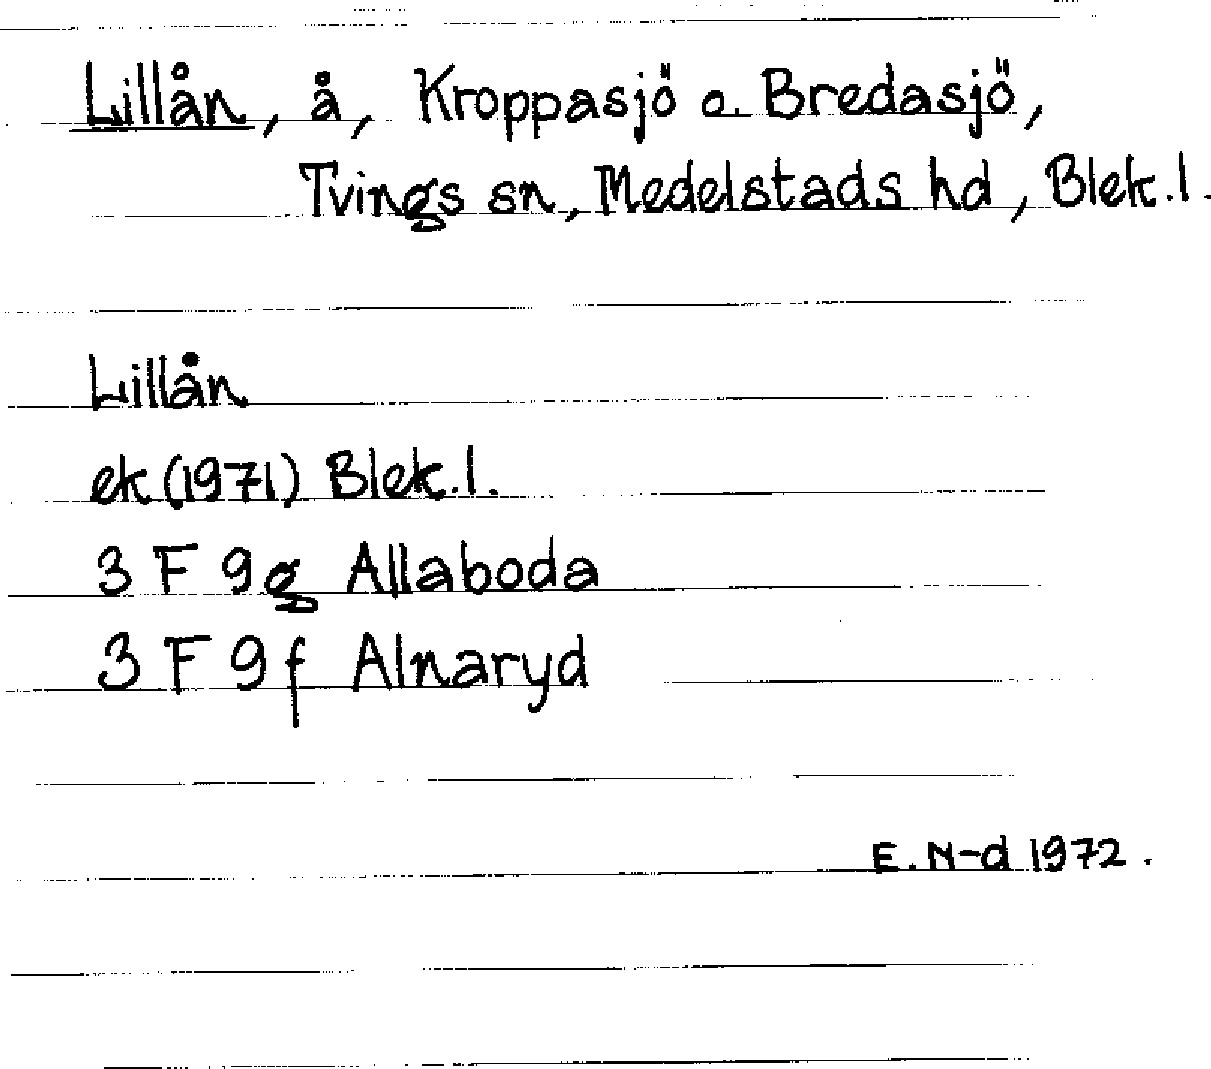 Lillån, å, Kroppasjö o. Bredasjö,
Tvings sn, Medelstads hd, Blek.l.
Lillån
ek (1971) Blek.l.
3 F 9g Allaboda
3 F 9f Alnaryd
E. N-d 1972.